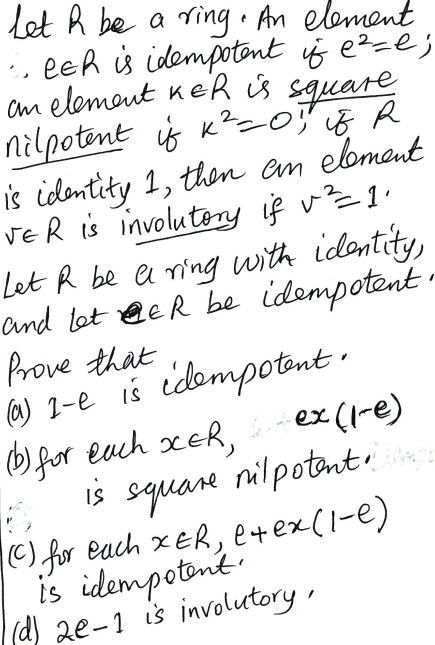 Let R be a ring. An element
e∈R is idempotent if e²=e;
an element k∈R is square
nilpotent if k²=0; if R
is identity 1, then an element
v∈R is involutory if v²=1.
Let R be a ring with identity,
and let e∈R be idempotent.
Prove that
(a) 1-e is idempotent.
(b) for each x∈R, ex(1-e)
is square nilpotent.
(c) for each x∈R, e+ex(1-e)
is idempotent.
(d) 2e-1 is involutory.